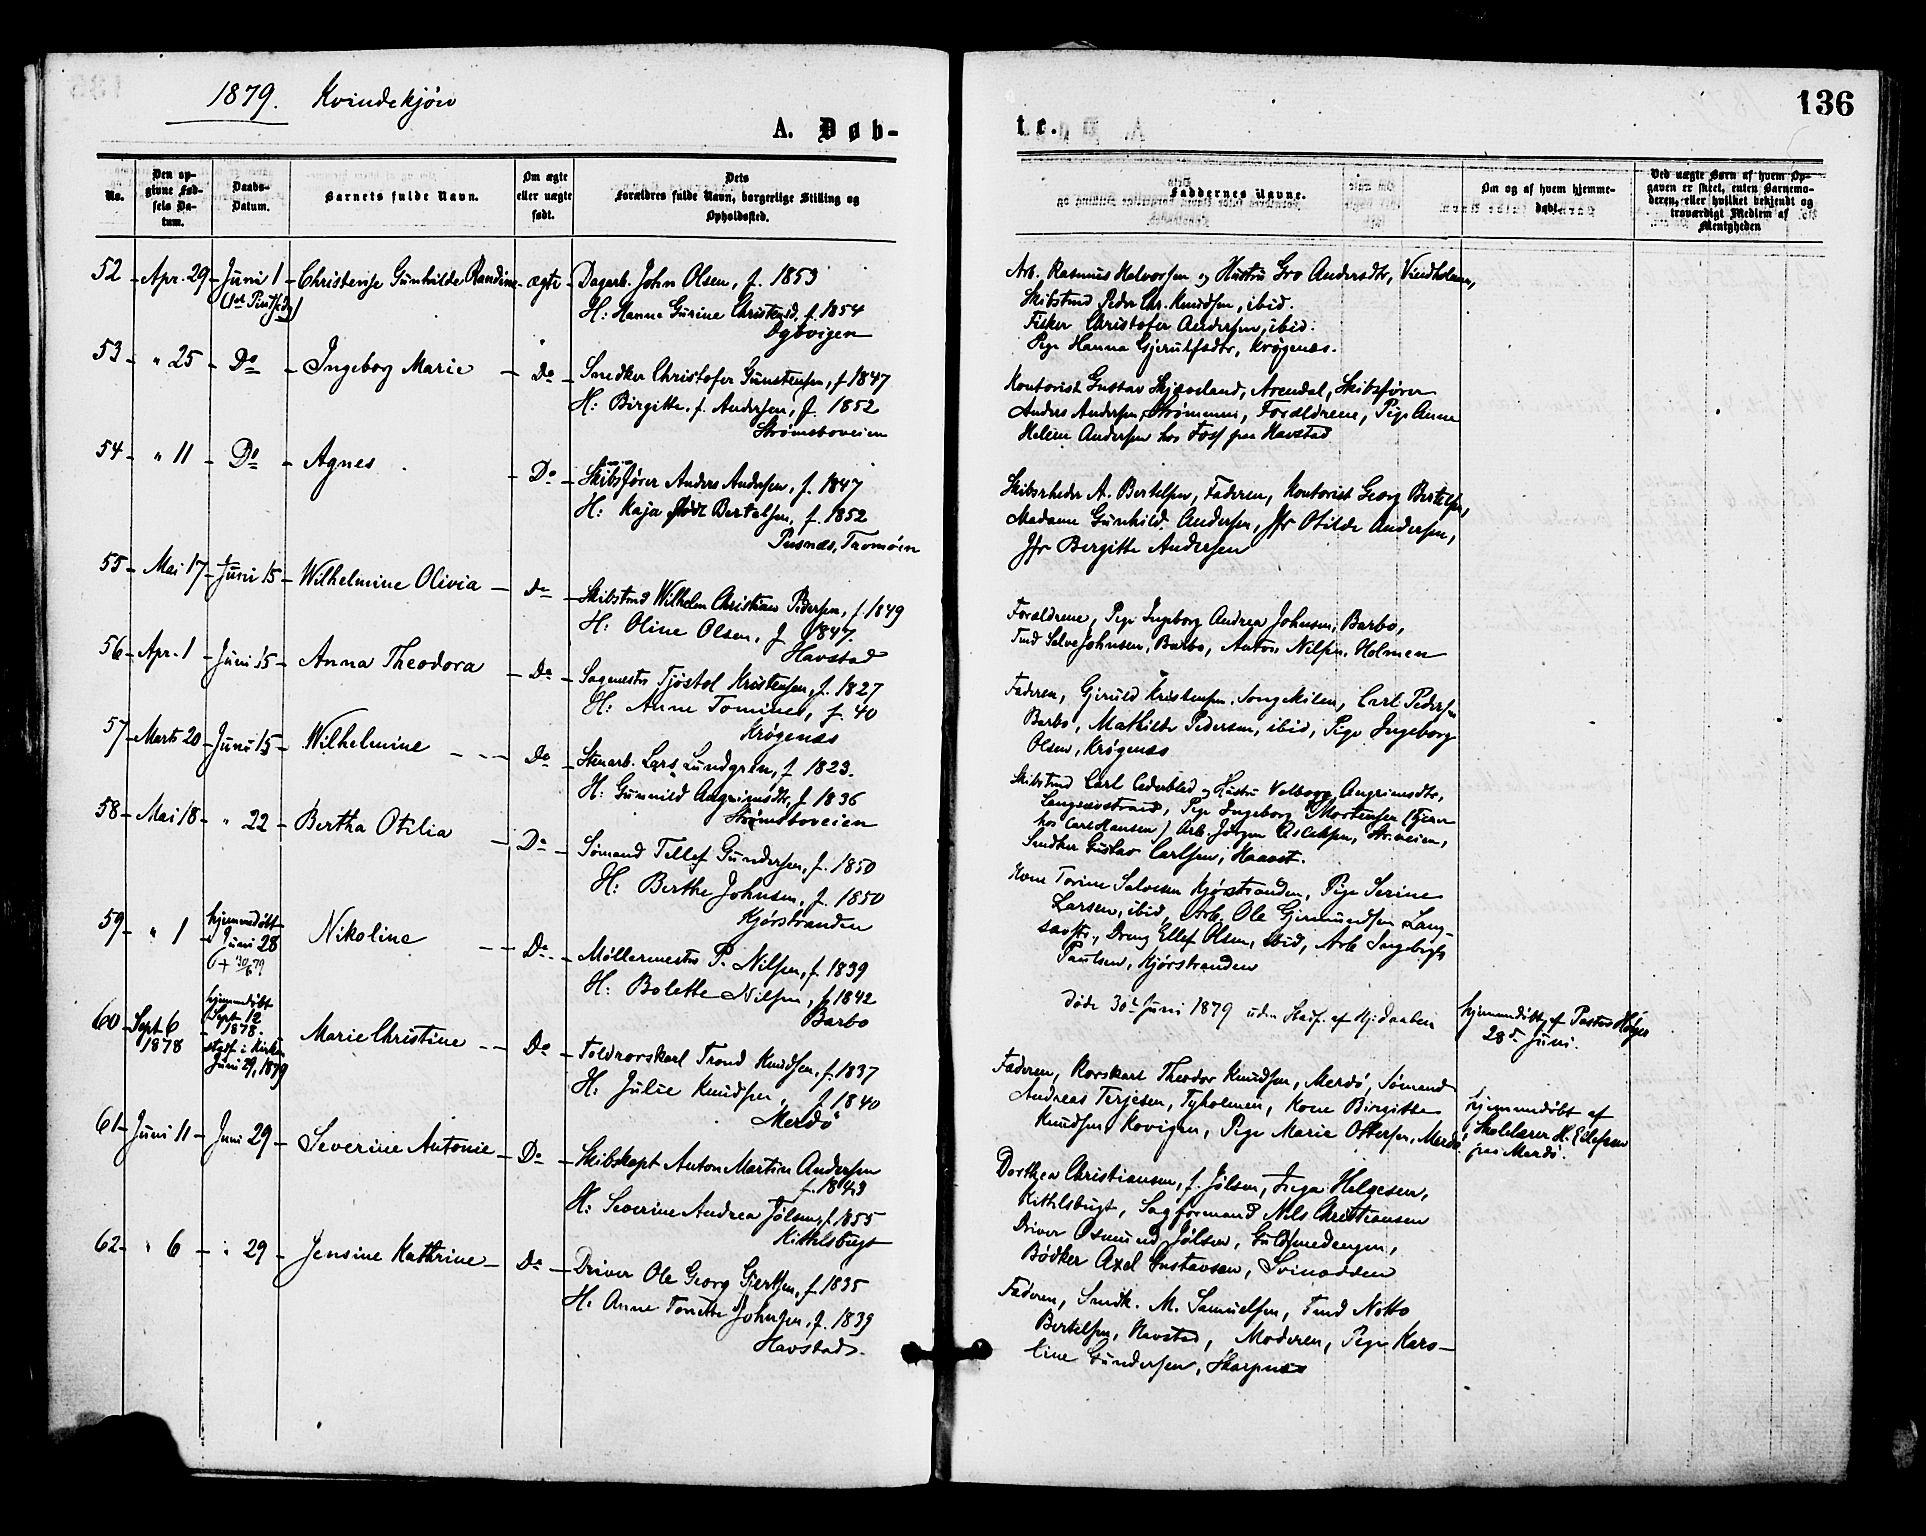 1879. Kvindekjøn
136
A. Døb-
te.
No.
Den op-
givne Fød-
sels Da-
tum.
Daabs-
Datum.
Barnets fulde Navn.
Om ægte
eller uægte
født.
Dets
Forældres fulde Navn, borgerlige Stilling og
Opholdssted.
Faddernes Navne.
Om og af hvem hjemme-
døbt.
Ved uægte Børn af hvem Op-
gaven er skeet, enten Barnemo-
deren, eller hvilket bekjendt og
troværdigt Medlem af
Menigheden
52 - Apr. 29 - Juni 1 - Christense Gunhilde Randine - ægte - Dagarb. John Olsen, f. 1853
(1st Pintsedag)
H: Hanna Gurine Christensd. f. 1854
Dybvigen
Arb. Rasmus Halvorsen og Hustru Gro Andersdtr, Vindholmen,
Skibstmd Peder Chr. Knudsen, ibid.
Fisker Christofer Andersen, ibid.
Pige Hanna Gjerulfsdtr, Krøgenæs.
53 - " 25 - Do - Ingeborg Marie - Do - Snedker Christofer Gunstensen, f 1847
H: Birgitte f. Andersen, f. 1852
Strømsboveien
Kontorist Gustav Skjæveland, Arendal, Skibsfører
Anders Andersen, Strømmen, Forældrene, Pige Anne
Helene Andersen hos Foss paa Havstad
54 - " 11 - Do - Agnes - Do - Skibsfører Anders Andersen, f. 1847
H: Kaja født Bertelsen, f. 1852
Pusnæs, Tromøen
Skibsrheder A. Bertelsen, Faderen, Kontorist Georg Bertelsen,
Madame Gunhild Andersen, Jfr Otilde Andersen,
Jfr Bergitte Andersen
55 - Mai 17 - Juni 15 - Wilhelmine Olivia - Do - Skibstmd Wilhelm Christian Pedersen, f. 1849
H: Oline Olsen, f 1847.
Havstad
Forældrene, Pige Ingeborg Andrea Johnsen, Barbo,
Tmd Salve Johnsen, Barbo, Anton Nilsen, Holmen
56 - Apr. 1 - Juni 15 - Anna Theodora - Do - Sagmester Tjøstol Kristensen, f. 1827
H: Anne Tomine, f. 40
Krøgenæs
Faderen, Gjeruld Kristensen, Songekilen, Carl Pedersen
Barbo, Mathilde Pedersen, ibid, Pige Ingeborg
Olsen, Krøgenæs
57 - Marts 20 - Juni 15 - Wilhelmine - Do - Stenarb. Lars Lundgren, f 1823.
H: Gunnild Angrimsdtr, f 1836
Strømsboveien
Skibstmd Carl Cederblad og Hustru Valborg Angrimsdtr,
Langsævstrand, Pige Ingeborg Mortensen (Tjener
hos Carl Hansen) Arb. Jørgen Aslaksen, Str.veien,
Snedker Gustav Carlsen,
58 - Mai 18 - " 22 - Bertha Otilia - Do - Sømand Tellef Gundersen, f. 1850
H: Berthe Johnsen, f. 1850
Kjørstranden
Kone Torine Salvesen Kjørstranden, Pige Serine
Larsen, ibid, Arb. Ole Gjermundsen Lang-
sævstr., Dreng Ellef Olsen, ibid, Arb. Ingebregt
Paulsen, Kjørstranden
59 - " 1 - hjemmedøbt
Juni 28
(+ 30/6 79
Nikoline - Do - Møllermester P. Nilsen, f. 1839
H: Bolette Nilsen, f. 1842
Barbo
døde 30te Juni 1879 uden Stadf. af Hj.daaben
hjemmedøbt af Pastor Høyer
28de Juni.
60 - Sept 6
1878
hjemmedøbt
Sept. 12
1878.
stadf. i Kirken
Juni 29, 1879
Marie Christine - Do - Toldrorskarl Trond Knudsen, f. 1837
H: Julie Knudsen, f. 1840
Merdø
Faderen, Rorskarl Theodor Knudsen, Merdø, Sømand
Andreas Terjesen, Tyholmen, Kone Birgitte
Knudsen, Kovigen, Pige Marie Ottersen, Merdø.
hjemmedøbt af
Skolelærer H. Eilefsen
paa Merdø.
61 - Juni 11 - Juni 29 - Severine Antonie - Do - Skibskapt Anton Martin Andersen
f. 1843
H: Severine Andrea Jølsen, f. 1855
Kittelsbugt
Dorthea Christiansen, f. Jølsen, Inga Helgesen,
Kittelsbugt, Sagformand Nils Christiansen
Driver Osmund Jølsen, Guldsmedengen,
Bødker Axel Gustavsen, Svinodden
62 - " 6 - " 29 - Jensine Kathrine - Do - Driver Ole Georg Giertsen, f. 1835
H: Anne Tonette Johnsen, f. 1839
Havstad.
Faderen, Snedk. M. Samuelsen, Tmd Notto
Bertelsen, Havstad, Moderen, Pige Karo-
line Gundersen, Skarpnæs